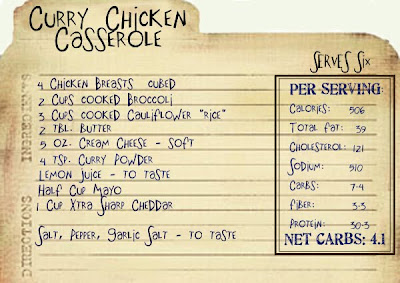 Curry Chicken
Casserole
Serves Six
INGREDIENTS
4 Chicken Breasts cubed
2 Cups cooked Broccoli
3 Cups cooked Cauliflower "rice"
2 Tbl. Butter
5 oz. Cream Cheese - Soft
4 tsp. Curry Powder
Lemon Juice - to taste
Half Cup Mayo
1 Cup Xtra Sharp Cheddar
Salt, Pepper, Garlic Salt - to taste
DIRECTIONS
PER SERVING:
Calories: 506
Total Fat: 39
Cholesterol: 121
Sodium: 510
Carbs: 7.4
Fiber: 3.3
Protein: 30.3
NET CARBS: 4.1